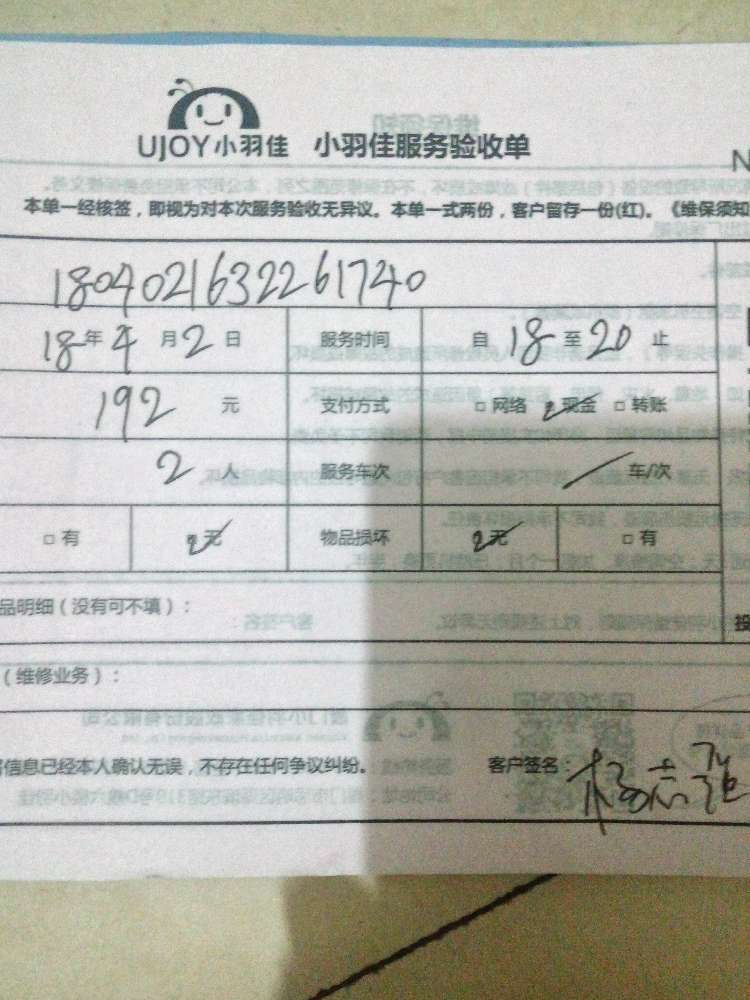 UJOY小羽佳 小羽佳服务验收单
N
本单一经核签，即视为对本次服务验收无异议。本单一式两份，客户留存一份(红)。《维保须知
1804021632261740
18年4月2日 服务时间 自18至20止
192元 支付方式 □网络 ☑现金 □转账
2人 服务车次 / 车/次
□有 ☑无 物品损坏 ☑无 □有
品明细（没有可不填）：
（维修业务）：
信息已经本人确认无误，不存在任何争议纠纷。 客户签名：杨志强